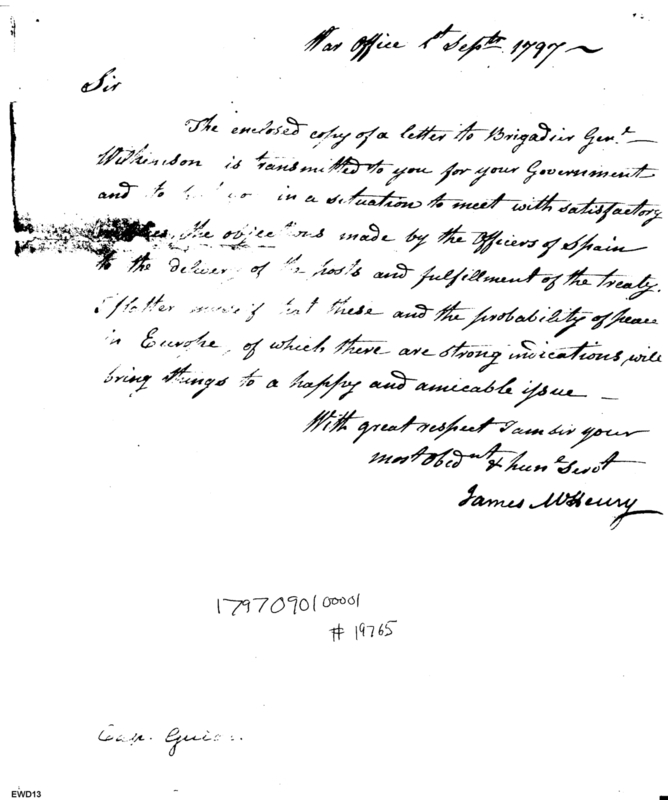 War Office 1st Septr. 1797
Sir
The enclosed copy of a letter to Brigadier Genl.
Wilkinson is transmitted to you for your Government
and to in a situation to meet with satisfactory
the objections made by the Officers of Spain
to the delivery of the posts and fulfillment of the treaty.
I flatter myself that these and the probability of peace
in Europe, of which there are strong indications, will
bring things to a happy and amicable issue
With great respect I am sir your
most Obednt & humle Servt
James McHenry
17970901 00001
# 19765
Cap. Guion.
EWD13